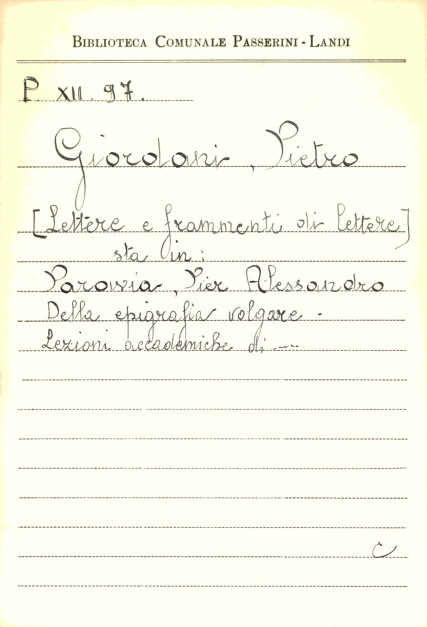 BIBLIOTECA COMUNALE PASSERINI-LANDI
P. XII. 97.
Giordani, Pietro
[Lettere e frammenti di lettere]
sta in:
Paravia, Pier Alessandro
Della epigrafia volgare -
Lezioni accademiche di ---
C